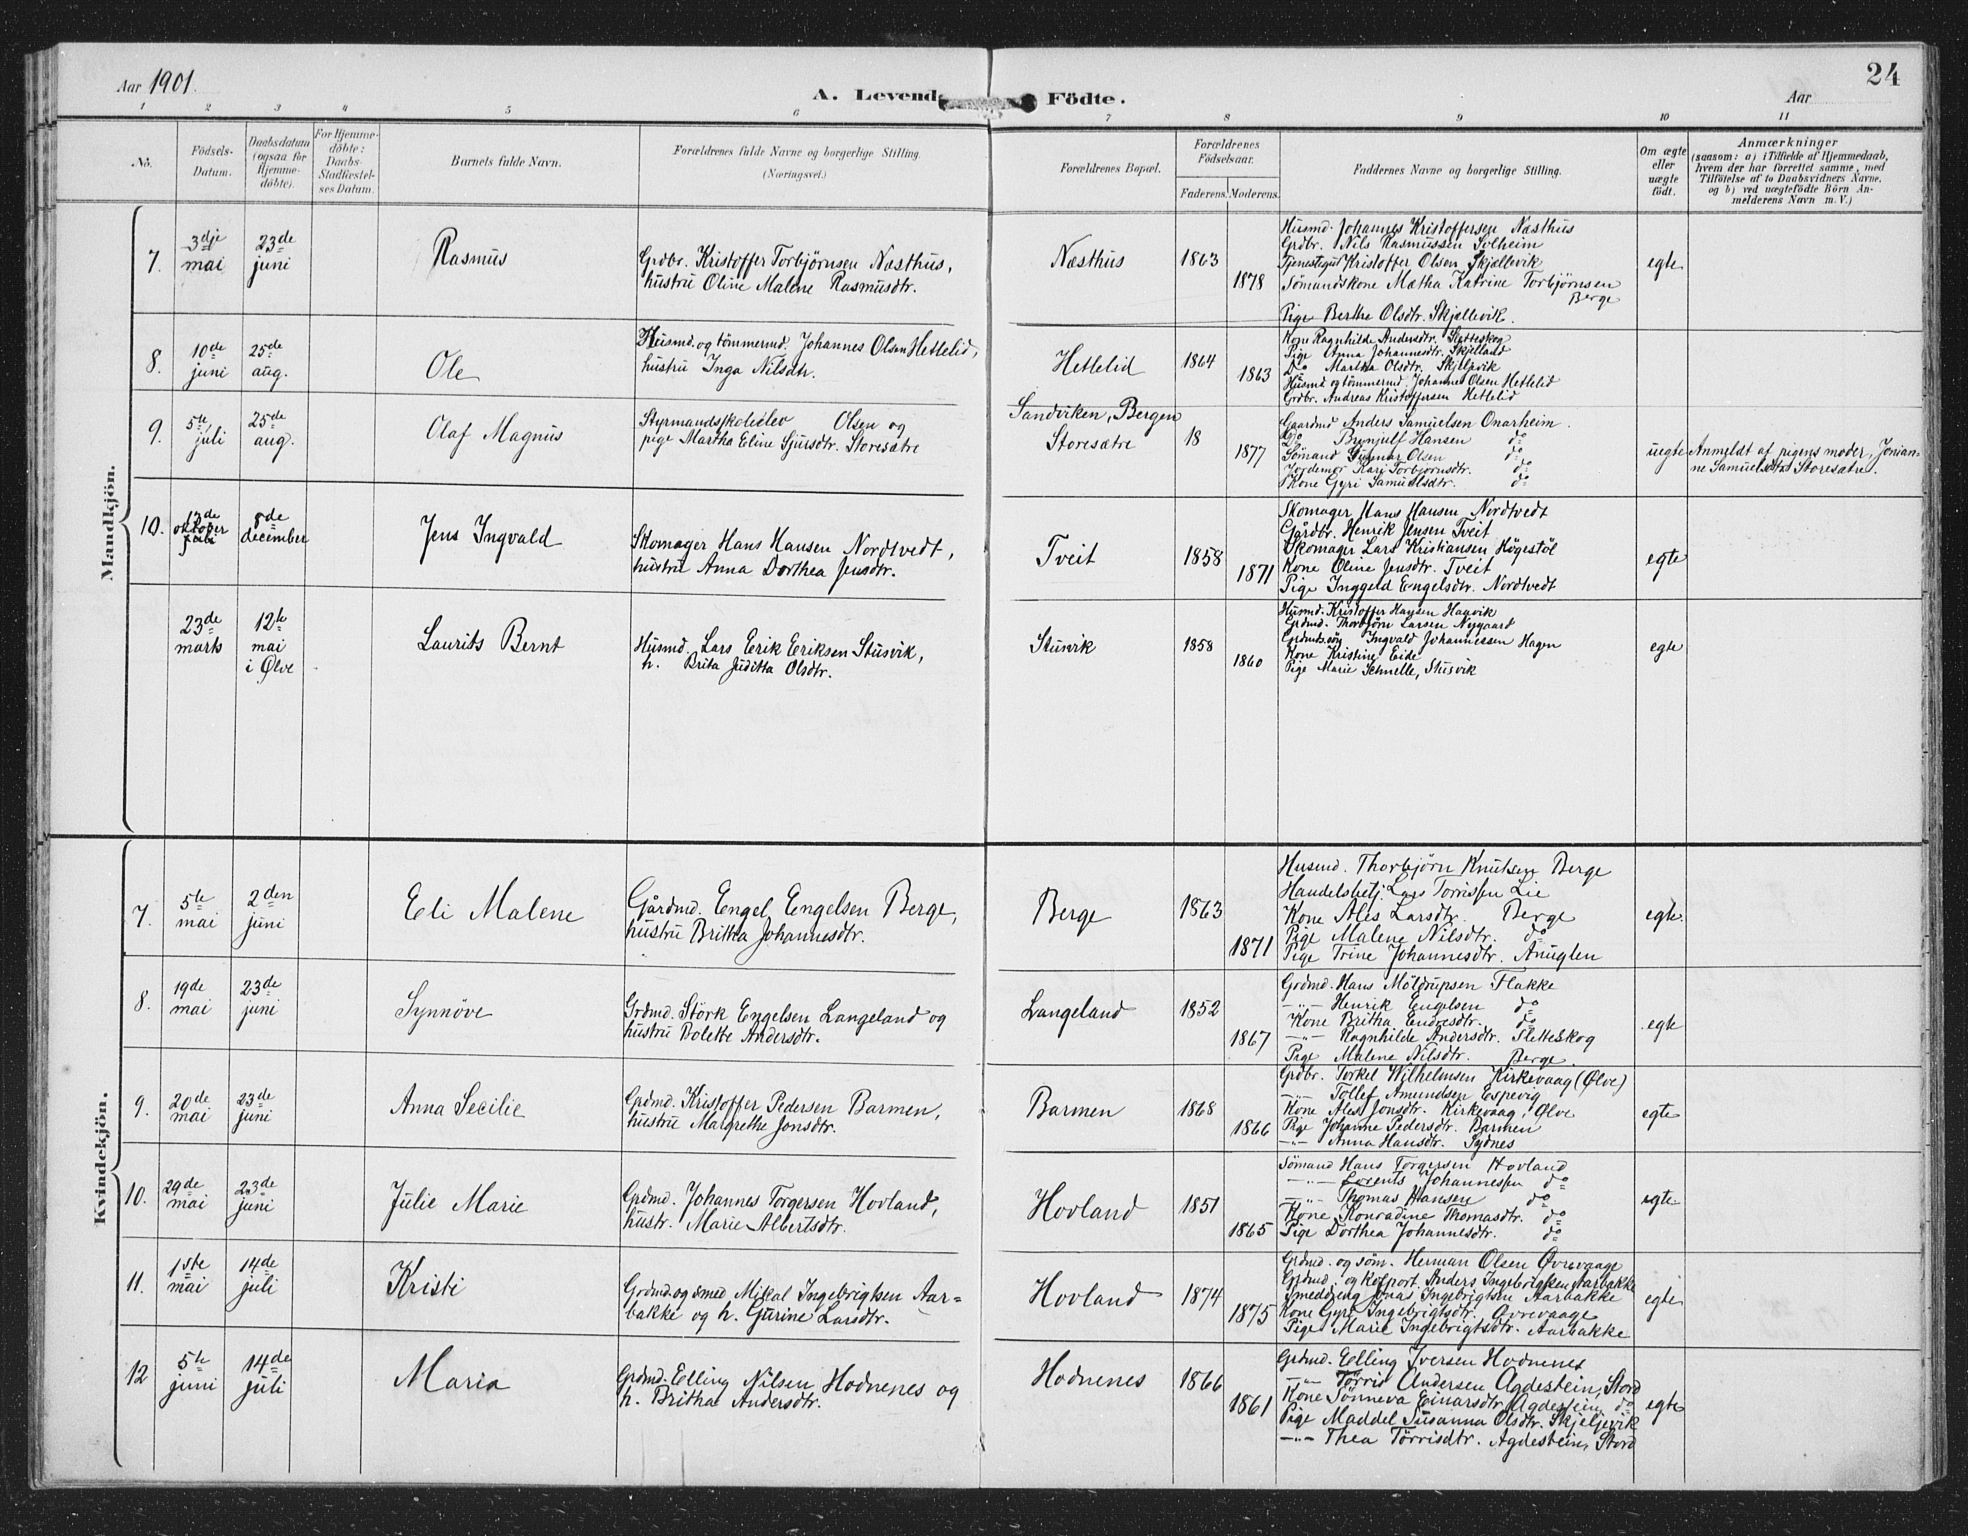 Aar 1901.
A. Levend
Födte.
Aar
24
1 2 3 4 5 6 7 8 9 10 11
No.
Födsels-
Datum.
Daabsdatum
(ogsaa for
Hjemme-
döbte).
For Hjemme-
döbte:
Daabs-
Stadfæstel-
ses Datum.
Barnets fulde Navn.
Forældrenes fulde Navne og borgerlige Stilling.
(Næringsvei.)
Forældrenes Bopæl.
Forældrenes
Födselsaar.
Faderens. Moderens.
Faddernes Navne og borgerlige Stilling.
Om ægte
eller
uægte
födt.
Anmærkninger
(saasom: a) i Tilfælde af Hjemmedaab,
hvem der har forrettet samme, med
Tilföielse af to Daabsvidners Navne.
og b) ved uægtefödte Börn An-
melderens Navn m. V.)
Mandkjön.
7.
3dje
mai
23de
juni
Rasmus
Grdbr. Kristoffer Torbjørnsen Næsthus,
hustru Oline Malene Rasmusdtr.
Næsthus
1863
1878
Husmd. Johannes Kristoffersen Næsthus
Grdbr. Nils Rasmussen Solheim
Tjenestegut Kristoffer Olsen Skjællevik
Sømandskone Mætha Katrine Torbjørnsen
Berge
Pige Berthe Olsdtr. Skjellevik.
egte
8.
10de
juni
25de
aug.
Ole
Husmd. og tömmermd. Johannes Olsen Hetlelid,
hustru Inga Nilsdtr.
Hetlelid
1864
1863
Kone Ragnhilde Andersdtr. Sletteskog
Pige Anna Johannesdtr. Skjelland
Do Martha Olsdtr. Skjelavik
Husmd og tömmermd. Johannes Olsen Hetlelid
Grdbr. Andreas Kristoffersen Hetlelid
9.
5te
juli
25de
aug.
Olaf Magnus
Styrmandsskoleelev Olsen og
pige Martha Eline Sjursdtr. Storesætre
Sandviken, Bergen
Storesætre
18
1877
Gaardmd Anders Samuelsen Onarheim.
Do Brynjulf Hansen do
Sømand Gunnar Olsen do
Jordemor Kari Torbjørnsdtr. do
Kone Gyri Samuelsdtr. do
uegte
Anmeldt af pigens moder, Jonian-
ne Samuelsdtr Storesætre.
10.
13de
oktober
juli
8de
december
Jens Ingvald
Skomager Hans Hansen Nordtvedt,
hustru Anna Dorthea Jensdtr.
Tveit
1858
1871
Skomager Hans Hansen Nordtvedt
Gårdbr. Henrik Jensen Tveit
Skomager Lars Kristiansen Högestöl
Kone Oline Jensdtr. Tveit
Pige Inggeld Engelsdtr. Nordtvedt
egte
23de
marts
12te
mai
i Ølve
Laurits Bernt
Husmd. Lars Erik Eriksen Stusvik,
h. Brita Juditta Olsdtr.
Stusvik
1858
1860
Husmd. Kristoffer Hansen Haavik
Grdmd. Thorbjörn Larsen Nygaard
Grdmdssøn Ingvald Johannessen Hagen
Kone Kristine Eide
Pige Marie Schnelle, Stusvik
egte
Kvindekjön.
7.
5te
mai
2den
juni
Eli Malene
Gårdmd. Engel Engelsen Berge,
hustru Brithea Johannesdtr.
Berge
1863
1871
Husmd. Thorbjörn Knutsen Berge
Handelsbetj. Lars Torrissen Lie
Kone Ales Larsdtr. Berge
Pige Malene Nilsdtr. do
Pige Trine Johannesdtr. Anuglen
egte.
8.
19de
mai
23de
juni
Synnöve
Grdmd. Störk Engelsen Langeland og
hustru Bolette Andersdtr.
Langeland
1852
1867
Grdmd. Hans Möldrupsen Flakke
-"- Henrik Engelsen do
Kone Britha Endresdtr. do
-"- Ragnhilde Andersdtr. Sletteskog
Pige Malene Nilsdtr. Berge
egte
9.
20de
mai
23de
juni
Anna Secilie
Grdmd. Kristoffer Pedersen Barmen,
hustru Margrethe Jonsdtr.
Barmen
1868
1866
Grdbr. Torkel Wilhelmsen Kirkevaag (Ølve)
-"- Tollef Amundsen Espevig
Kone Ales Jonsdtr. Kirkevaag, Ølve
Pige Johanne Pedersdtr. Barmen
-"- Anna Hansdtr. Sydnes
egte
10.
29de
mai
23de
juni
Julie Marie
Grdmd. Johannes Torgersen Hovland,
hustr. Marie Albertsdtr.
Hovland
1851
1865
Sömand Hans Torgersen Hovland
-"- Lorents Johannessen do
-"- Thomas Hansen do
Kone Konradine Thomasdtr. do
Pige Dorthea Johannesdtr. do
egte
11.
1ste
mai
14de
juli
Kristi
Grdmd. og smed Mikal Ingebrigtsen Aar-
bakke og h. Gurine Larsdtr.
Hovland
1874
1875
Grdmd. og söm. Herman Olsen Øvrevaage
Grdmd. og kolport. Anders Ingebrigtsen Aarbakke
Smeddreng Jonas Ingebrigtsen Aarbakke
Kone Gyri Ingebrigtsdtr. Øvrevaage
Pige Marie Ingebrigtsdtr. Aarbakke
egte
12
5te
juni
14de
juli
Maria
Grdmd. Elling Nilsen Hodnenes og
h. Britha Andersdtr.
Hodnenes
1866
1861
Grdmd. Elling Iversen Hodnenes
-"- Törris Andersen Agdestein, Stord
Kone Sönneva Einarsdtr. Agdestein, do
Pige Maddel Susanna Olsdtr. Skjeljevik
-"- Thea Törrisdtr. Agdestein, Stord
egte